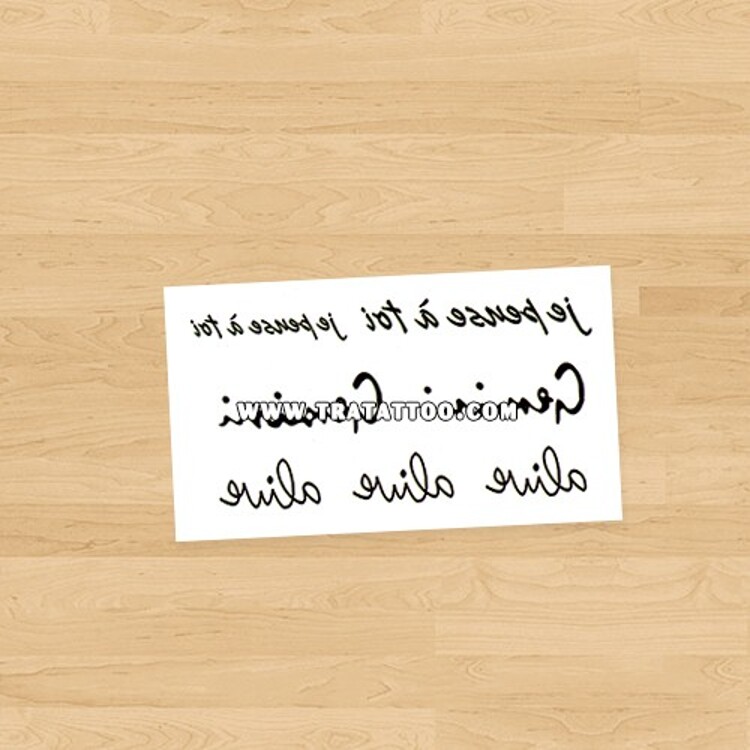 je pense à toi je pense à toi
Gemini Gemini
WWW.TRATATTOO.COM
alive alive alive